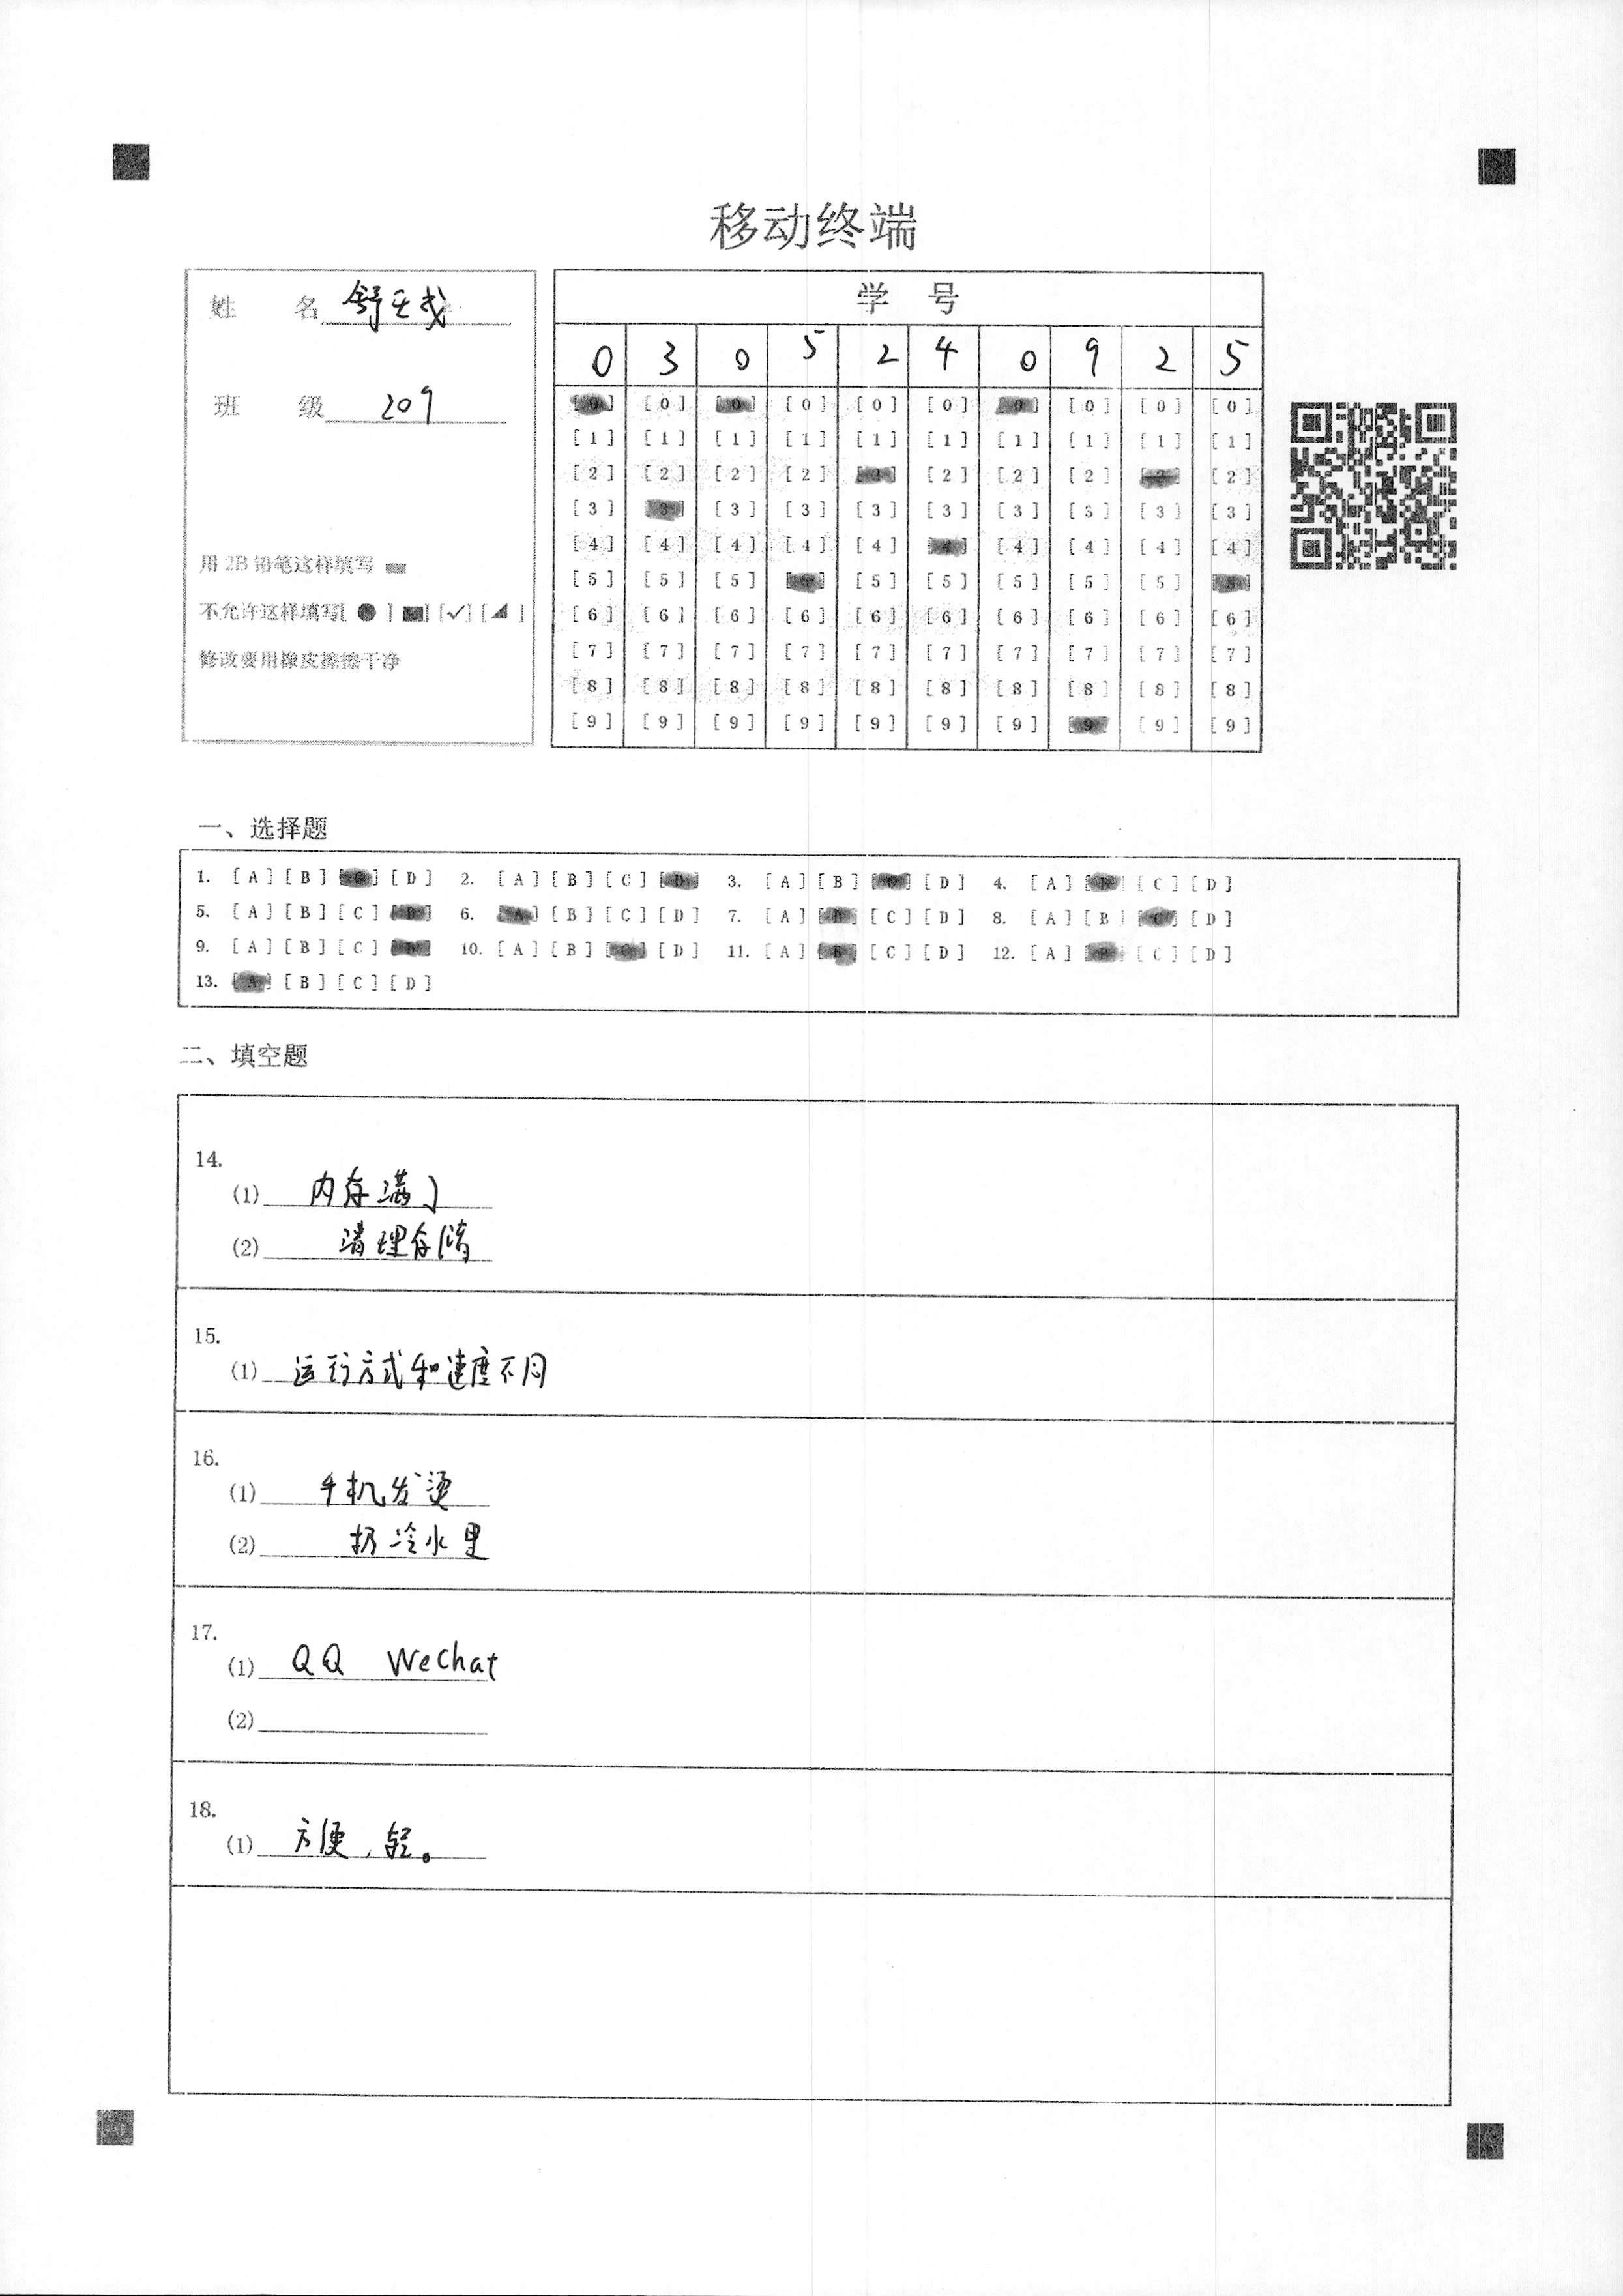 移动终端
姓 名 舒
班 级 209
用 2B 铅笔这样填写
不允许这样填写[ ● ] [■] [✓] [◢ ]
修改要用橡皮擦擦干净
学 号
0 3 0 5 2 4 0 9 2 5
[0] [0] [0] [0] [0] [0] [0] [0] [0] [0]
[1] [1] [1] [1] [1] [1] [1] [1] [1] [1]
[2] [2] [2] [2] [2] [2] [2] [2] [2] [2]
[3] [3] [3] [3] [3] [3] [3] [3] [3] [3]
[4] [4] [4] [4] [4] [4] [4] [4] [4] [4]
[5] [5] [5] [5] [5] [5] [5] [5] [5] [5]
[6] [6] [6] [6] [6] [6] [6] [6] [6] [6]
[7] [7] [7] [7] [7] [7] [7] [7] [7] [7]
[8] [8] [8] [8] [8] [8] [8] [8] [8] [8]
[9] [9] [9] [9] [9] [9] [9] [9] [9] [9]
一、选择题
1. [A] [B] [C] [D] 2. [A] [B] [C] [D] 3. [A] [B] [C] [D] 4. [A] [B] [C] [D]
5. [A] [B] [C] [D] 6. [A] [B] [C] [D] 7. [A] [B] [C] [D] 8. [A] [B] [C] [D]
9. [A] [B] [C] [D] 10. [A] [B] [C] [D] 11. [A] [B] [C] [D] 12. [A] [B] [C] [D]
13. [A] [B] [C] [D]
二、填空题
14.
(1) 内存满了
(2) 清理存储
15.
(1) 运行方式和速度不同
16.
(1) 手机发烫
(2) 扔冷水里
17.
(1) QQ WeChat
(2)
18.
(1) 方便，轻。